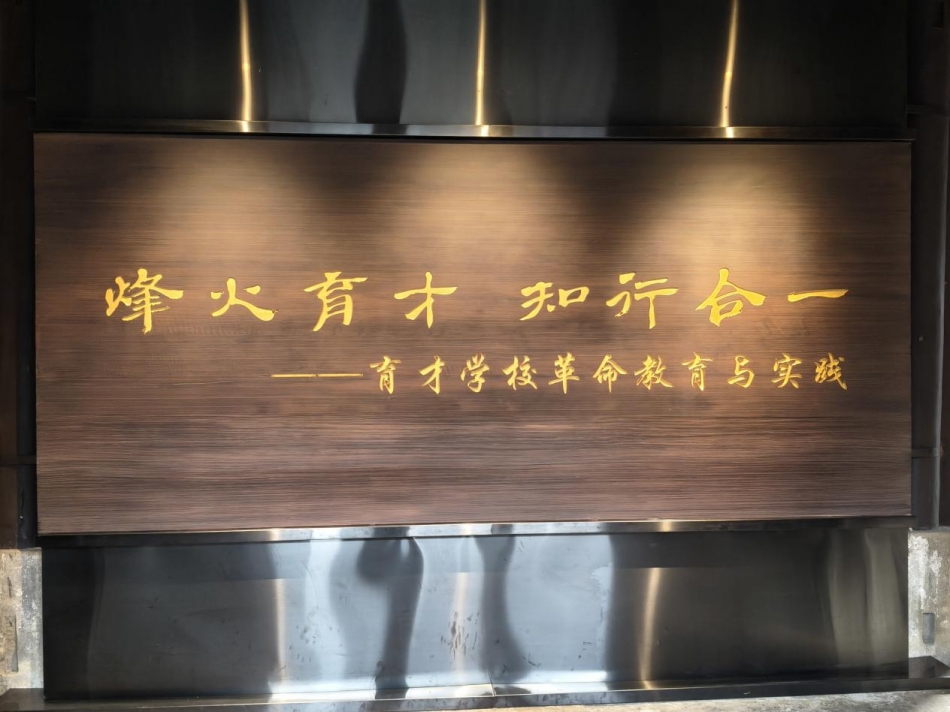 烽火育才 知行合一
——育才学校革命教育与实践